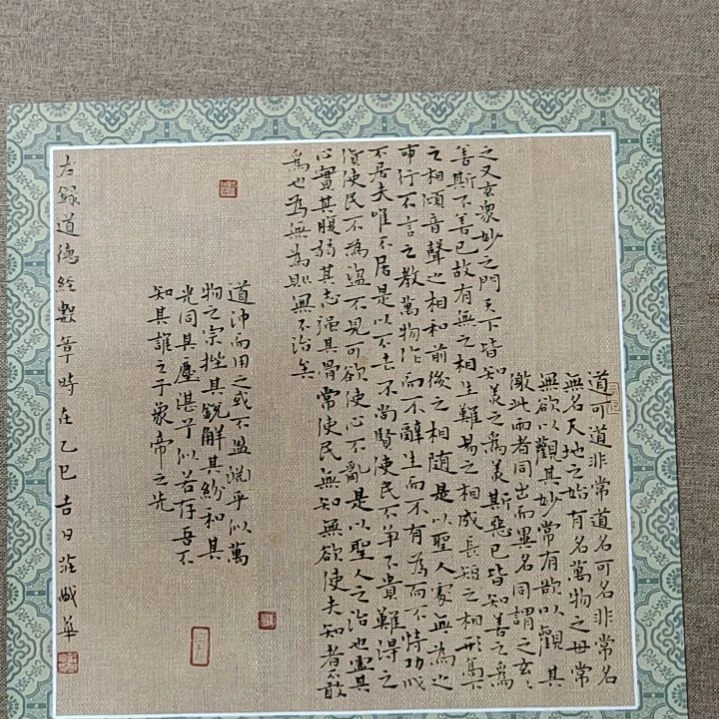 道可道非常道名可名非常名
無名天地之始有名萬物之母常
無欲以觀其妙常有欲以觀其
徼此兩者同出而異名同謂之玄〻
之又玄眾妙之門天下皆知美之為美斯惡已皆知善之為
善斯不善已故有無之相生難易之相成長短之相形高下
之相傾音聲之相和前後之相隨是以聖人處無為之
事行不言之教萬物作而不辭生而不有為而不恃功成
不居夫唯不居是以不去不尚賢使民不爭不貴難得之
貨使民不為盜不見可欲使心不亂是以聖人之治也虛其
心實其腹弱其志強其骨常使民無知無欲使夫知者不敢
為也為無為則無不治矣
道沖而用之或不盈淵乎似萬
物之宗挫其銳解其紛和其
光同其塵湛兮似若存吾不
知其誰之子象帝之先
右錄道德經數章時在乙巳吉日華